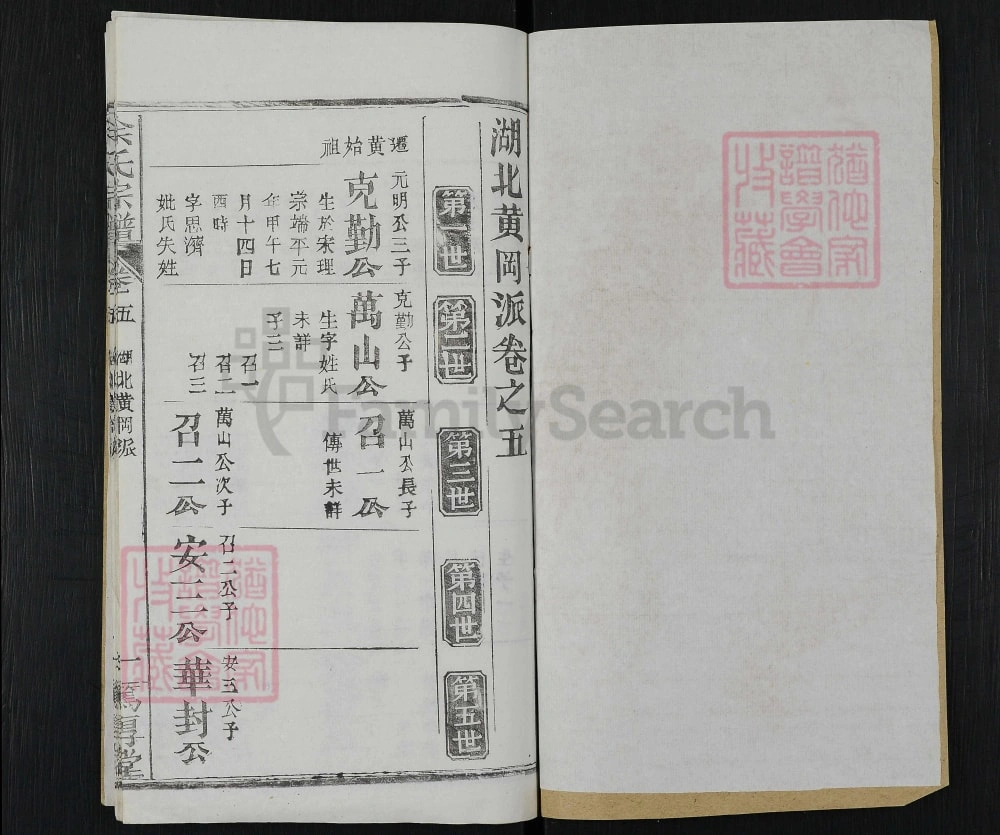 湖北黃岡派卷之五
第一世
第二世
第三世
第四世
第五世
遷黃始祖
元明公三子
克勤公
生於宋理
宗端平元
年甲午七
月十四日
酉時
字思濟
妣氏失姓
克勤公子
萬山公
生字姓氏
未詳
子三
召一
召二
召三
萬山公長子
召一公
傳世未詳
萬山公次子
召二公
召二公子
安三公
安三公子
華封公
余氏宗譜
卷五
湖北黃岡派
一
篤厚堂
FamilySearch